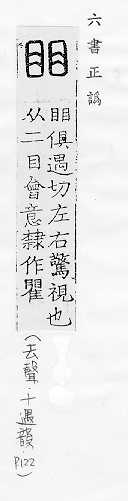 六書正譌
䀠
䀠俱遇切左右驚視也
从二目會意隸作瞿
(去聲.十遇韻.P122)